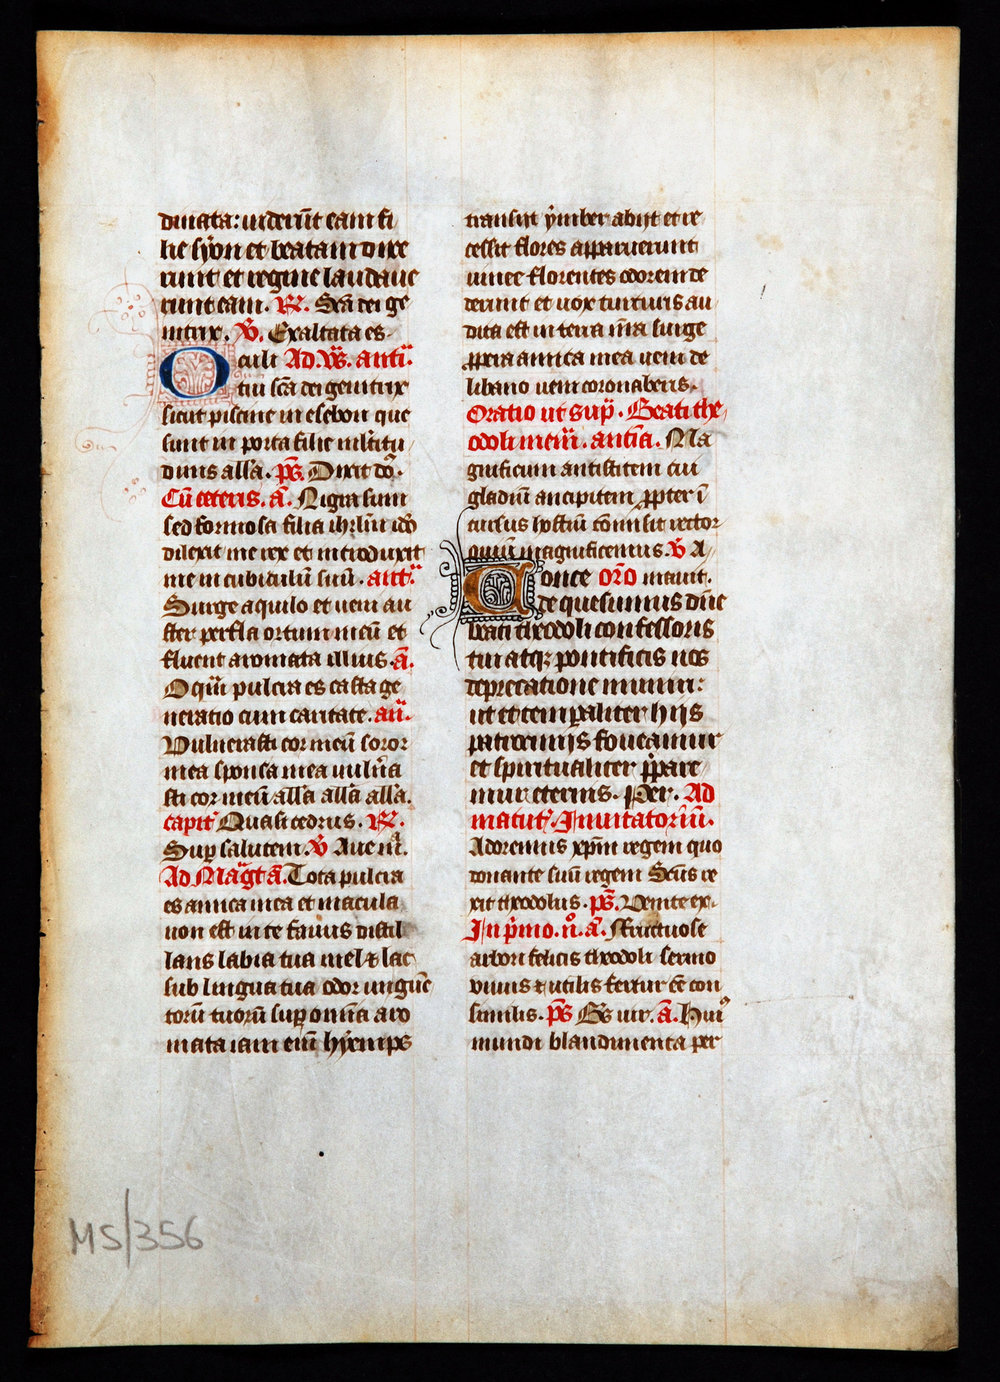 diuiata: uideru̅t eam fi
lie syon et beatam dixe
runt et regine laudaue
runt eam. R̸. S̅c̅a dei ge
nitrix. V̸. Exaltata es
Oculi Ad. V̅s̅. anti̅.
tui sc̅a dei genitrix
sicut piscine in esebon que
sunt in porta filie multitu
dinis all̅a. p̅s̅. Dixit do̅.
Cu̅ ceteris. a̅. Nigra sum
sed formosa filia ihrl̅m ido̅
dilexit me rex et introduxit
me in cubiculu̅ suu̅. ant̅.
Surge aquilo et ueni au
ster perfla ortum meu̅ et
fluent aromata illius. a̅.
O q̅m pulcra es casta ge
neratio cum caritate. an̅.
Vulnerasti cor meu̅ soror
mea sponsa mea uuln̅a
sti cor meu̅ all̅a all̅a all̅a.
capit̅ Quasi cedrus. R̸.
Sup̅ salutem. V̸ Aue m̅.
Ad Mag̅t a̅. Tota pulcra
es amica mea et macula
non est in te fauus distil
lans labia tua mel ⁊ lac
sub lingua tua odor ungue̅
toru̅ tuoru̅ sup̅ omn̅ia aro
mata iam eni̅ hyemps
transiit ymber abijt et re
cessit flores apparuerunt
uinee florentes odorem de
derunt et uox turturis au
dita est in terra n̅ra surge
p̅pera amica mea ueni de
libano ueni coronaberis.
Oratio ut sup̅. Beati the
odoli mem̅. anti̅a. Ma
gnificum antistitem cui
gladiu̅ ancipitem p̅pter i̅
cursus hostiu̅ co̅misit rector
quiu̅ magnificemus. V̸ A
donce or̅o maiut.
de quesumus dn̅e
beati theodoli confessoris
tui atq̅ʒ pontificis nos
deprecatione muniri:
ut et temp̅aliter hijs
patrocinijs foueamur
et spiritualiter p̅pare
mur eternis. Per. Ad
matut̅. Inuitatoriu̅.
Adoremus xp̅m regem quo
donante suu̅ regem Sc̅us re
xit theodolus. p̅s̅. Venite ex.
In p̅mo. n̅. a̅. Fructuose
arbori felicis theodoli sermo
uiuus ⁊ utilis fertur e̅e con
similis. p̅s̅ B̅s̅ uir. a̅. Hui̅
mundi blandimenta per
MS/356